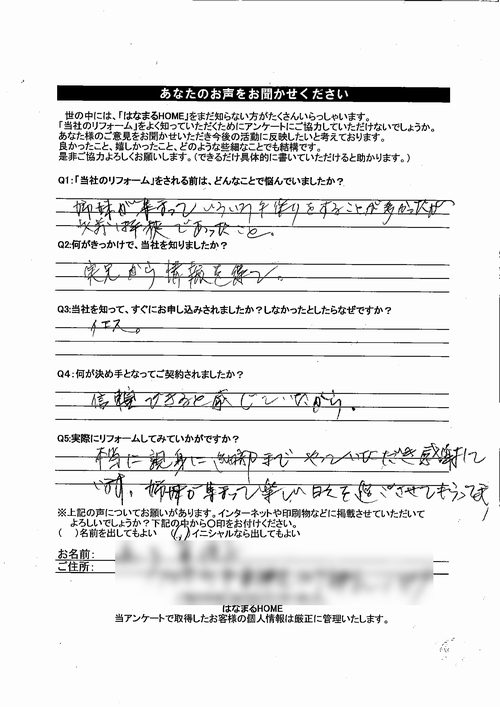 あなたのお声をお聞かせください
世の中には、「はなまるHOME」をまだ知らない方がたくさんいらっしゃいます。
「当社のリフォーム」をよく知っていただくためにアンケートにご協力していただけないでしょうか。
あなた様のご意見をお聞かせいただき今後の活動に反映したいと考えております。
良かったこと、嬉しかったこと、どのような些細なことでも結構です。
是非ご協力よろしくお願いします。(できるだけ具体的に書いていただけると助かります。)
Q1:「当社のリフォーム」をされる前は、どんなことで悩んでいましたか?
姉妹が集まっていろいろ手作りをすることが多かったが
以前は手狭であったこと。
Q2:何がきっかけで、当社を知りましたか?
実兄から情報を得て。
Q3:当社を知って、すぐにお申し込みされましたか?しなかったとしたらなぜですか?
イエス。
Q4:何が決め手となってご契約されましたか?
信頼できると感じていたから。
Q5:実際にリフォームしてみていかがですか?
本当に親身に細部までやっていただき感謝して
います。姉妹が集まって楽しい日々を過ごさせてもらってます
※上記の声についてお願いがあります。インターネットや印刷物などに掲載させていただいて
よろしいでしょうか?下記の中から〇印をお付けください。
( )名前を出してもよい ( )イニシャルなら出してもよい
お名前:
ご住所:
はなまるHOME
当アンケートで取得したお客様の個人情報は厳正に管理いたします。